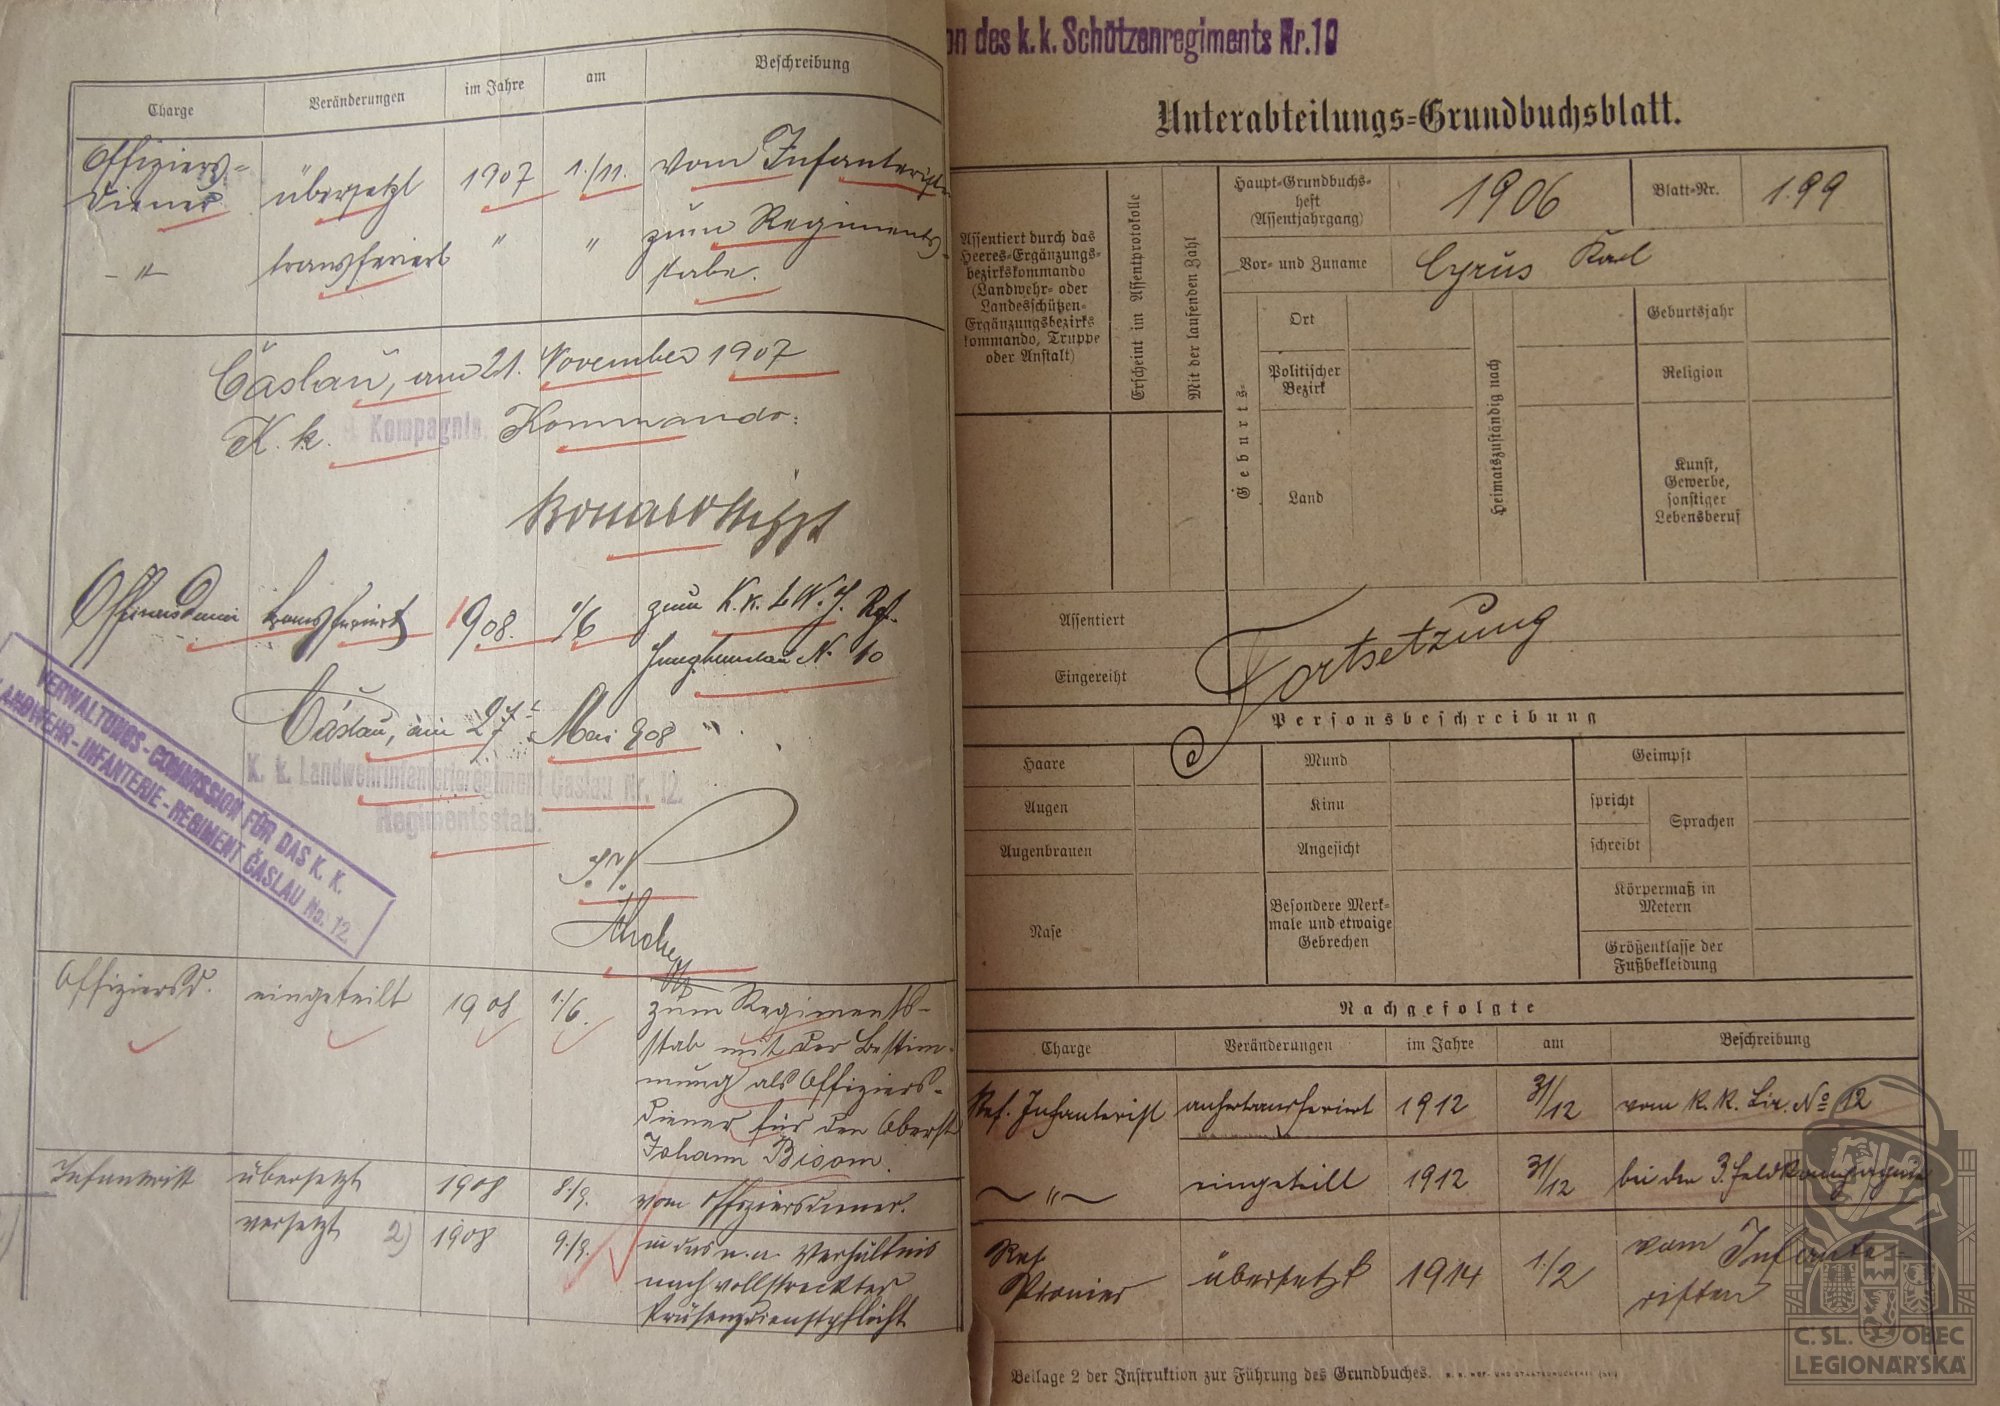 Charge Veränderungen im Jahre am Beschreibung
Offiziers= übersetzt 1907 1./11. vom Infanteristen
diener
-"- transferiert " " zum Regiments
stabe.
Čáslau, am 21. November 1907
K. k. Kompagnie Kommando:
Offiziersdiener transferiert 1908. 1/6 zum K. k. L. W. J. Rgt.
Jungbunzlau N. 10
Čáslau, am 27. Mai 908
K. k. Landwehrinfanterieregiment Časlau Nr. 12.
Regimentsstab.
VERWALTUNGS-COMMISSION FÜR DAS K. K.
LANDWEHR-INFANTERIE-REGIMENT ČASLAU No. 12.
Offiziersd. eingeteilt 1908 1./6. zum Regiments-
stab mit der Bestim-
mung als Offiziers-
diener für den Oberst
Johann Bisom.
Infanterist übersetzt 1908 8./9. vom Offiziersdiener.
versetzt 2) 1908 9./9. in das n. a. Verhältnis
nach vollstreckter
Präsenzdienstpflicht
on des k. k. Schützenregiments Nr. 10
Unterabteilungs=Grundbuchsblatt.
Assentiert durch das
Heeres=Ergänzungs=
bezirkskommando
(Landwehr= oder
Landesschützen=
Ergänzungsbezirks
kommando, Truppe
oder Anstalt)
Erscheint im Assentprotokolle
Mit der laufenden Zahl
Haupt=Grundbuchs=
heft
(Assentjahrgang)
1906
Blatt=Nr.
199
Vor= und Zuname
Cyrus Karl
Geburts=
Ort
Politischer
Bezirk
Land
Heimatszuständig nach
Geburtsjahr
Religion
Kunst,
Gewerbe,
sonstiger
Lebensberuf
Assentiert
Eingereiht
Fortsetzung
Personsbeschreibung
Haare
Mund
Geimpft
Augen
Kinn
spricht
Sprachen
Augenbrauen
Angesicht
schreibt
Nase
Besondere Merk=
male und etwaige
Gebrechen
Körpermaß in
Metern
Größenklasse der
Fußbekleidung
Nachgefolgte
Charge Veränderungen im Jahre am Beschreibung
Res. Infanterist anhertransferiert 1912 31/12 vom k. k. Lir. No 12
~"~ eingeteilt 1912 31/12 bei der 3. Feldkompagnie
Res. übersetzt 1914 1./2 vom Infante-
Pionier risten
Beilage 2 der Instruktion zur Führung des Grundbuches.
K. K. HOF- UND STAATSDRUCKEREI
Č. SL. OBEC
LEGIONÁŘSKÁ